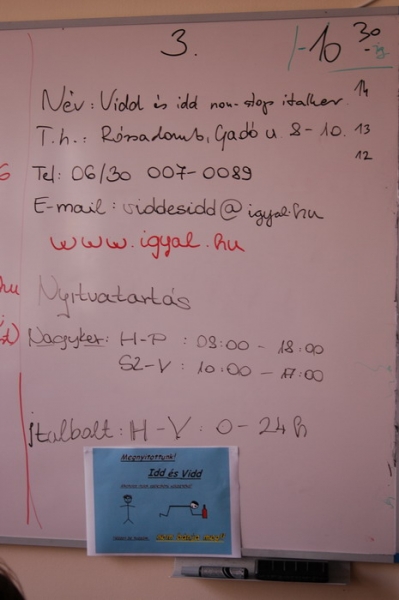 3.
10 30 -ig
Név: Vidd és idd non-stop italker. 14
T.h.: Rózsadomb, Gadó u. 8-10. 13
12
Tel: 06/30 007-0089
E-mail: viddesidd@igyal.hu
www.igyal.hu
Nyitvatartás
Nagyker: H-P : 08:00 - 18:00
SZ-V : 10:00 - 17:00
Italbolt: H-V: 0-24 h
Megnyitottunk!
Idd és Vidd